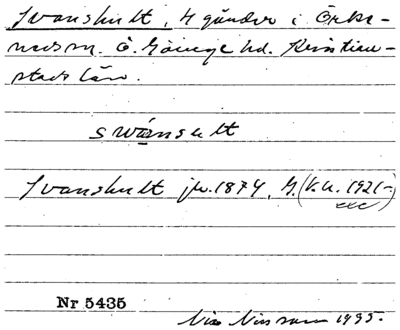 Svanshult, 4 gånder i Örke-
neds sn. Ö. Göinge hd. Kristian-
stads län.
swánsult
Svanshult jb. 1874, G. (V.u. 1921-)
Nr 5435
Nils Nilsson 1935.